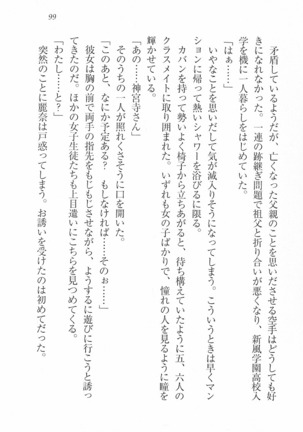 99
矛盾しているようだが、亡くなった父親のことを思いださせる空手はどうしても好
きになれなかった。一連の跡継ぎ問題で祖父と折り合いが悪くなり、新風学園高校入
学を機に一人暮らしをはじめていた。
「はぁ……」
いやなことを思いだして気が滅入りそうになってしまう。こういうときは早くマン
ションに帰って熱いシャワーを浴びるに限る。
カバンを持って勢いよく椅子から立ちあがると、待ち構えていたように五、六人の
クラスメイトに取り囲まれた。いずれも女の子ばかりで、憧れの人を見るように瞳を
輝かせている。
「あの……神宮寺さん」
そのうちの一人が照れくさそうに口を開いた。
「このあと、なにか予定ある？ もしなければ……そのぉ……」
彼女は胸の前で両手の指先をもじもじさせながら、ようするに遊びに行こうと誘っ
てきたのだ。ほかの女子生徒たちも上目遣いにこちらを見つめてくる。
「わたし……と？」
突然のことに麗奈は戸惑ってしまう。お誘いを受けたのは初めてだった。